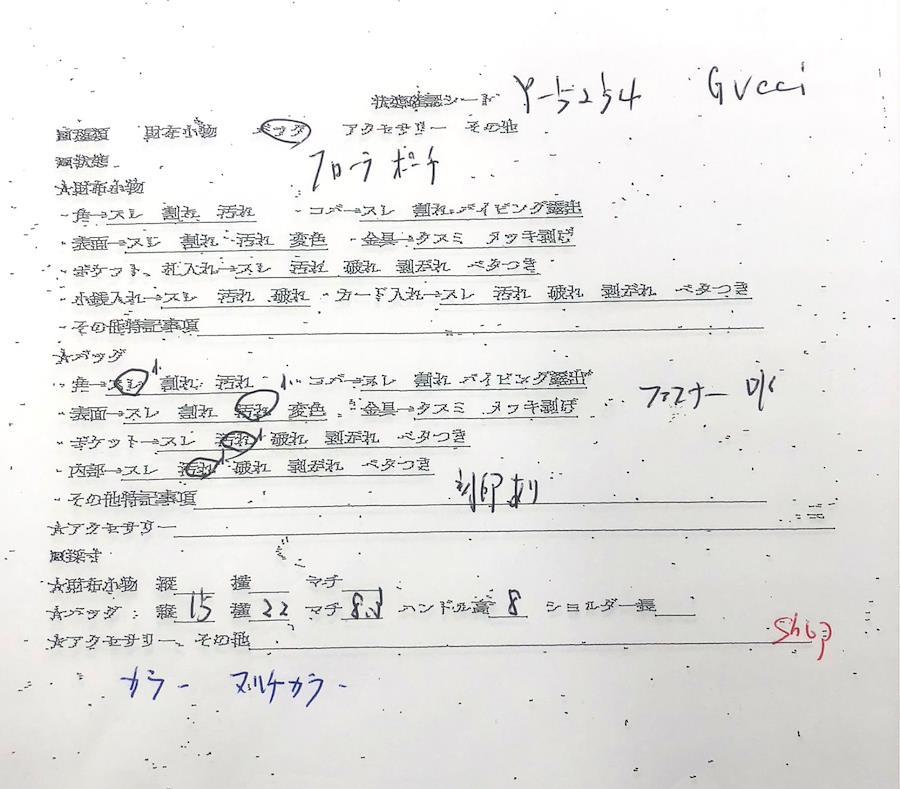 状態確認シート Y-5254 Gucci
▣種類 財布小物 バッグ アクセサリー その他
▣状態 フローラ ポーチ
☆財布小物
・角→スレ 割れ 汚れ ・コバ→スレ 割れ パイピング露出
・表面→スレ 割れ 汚れ 変色 ・金具→クスミ メッキ剥げ
・ポケット、札入れ→スレ 汚れ 破れ 剥がれ ベタつき
・小銭入れ→スレ 汚れ 破れ ・カード入れ→スレ 汚れ 破れ 剥がれ ベタつき
・その他特記事項
☆バッグ
・角→スレ小 割れ 汚れ ・コバ→スレ 割れ パイピング露出
・表面→スレ 割れ 汚れ小 変色 ・金具→クスミ メッキ剥げ ファスナー OK
・ポケット→スレ 汚れ小 破れ 剥がれ ベタつき
・内部→スレ 汚れ小 破れ 剥がれ ベタつき
・その他特記事項 刻印あり
☆アクセサリー
▣採寸
☆財布小物 縦 横 マチ
☆バッグ 縦 15 横 22 マチ 8.3 ハンドル高 8 ショルダー長
☆アクセサリー、その他 Shop
カラー マルチカラー